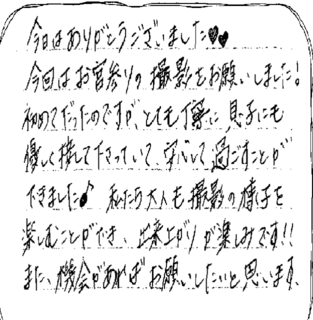 今日はありがとうございました♥♥
今回はお宮参りの撮影をお願いしました!
初めてだったのですが、とても丁寧に、息子にも
優しく接して下さっていて、安心して過ごすことが
できました♪ 私たち大人も撮影の様子を
楽しむことができ、出来上がりが楽しみです!!
また、機会があればお願いしたいと思います。